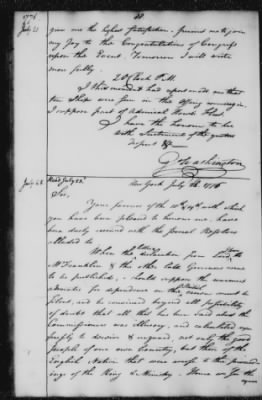 1776
July 21
38
give me the highest Satisfaction. Permit me to join
my Joy to the Congratulations of Congress
upon the Event. Tomorrow I will write
more fully.
2 O'Clock P.M.
I this moment had report made me that
ten Ships were seen in the Offing coming in.
I suppose part of Admiral Howe's Fleet.
I have the honour to be
with Sentiments of the greatest
respect &c
Go Washington
July 22
Read July 23d
New York July 22d 1776
Sir,
Your favours of the 18th & 19th with which
you have been pleased to honour me, have
been duly received with the several Resolves
alluded to.
When the letters & declaration from Lord Howe to
Mr Franklin & the other late Governors come
to be published, I should suppose the warmest
advocates for dependence on the British crown must be
silent, and be convinced beyond all possibility
of doubt that all that has been said about the
Commissioners was illusory, and calculated ex-
pressly to deceive & unguard, not only the good
people of our own Country, but those of the
English Nation that were averse to the proceed-
ings of the King & Ministry. Hence we see the